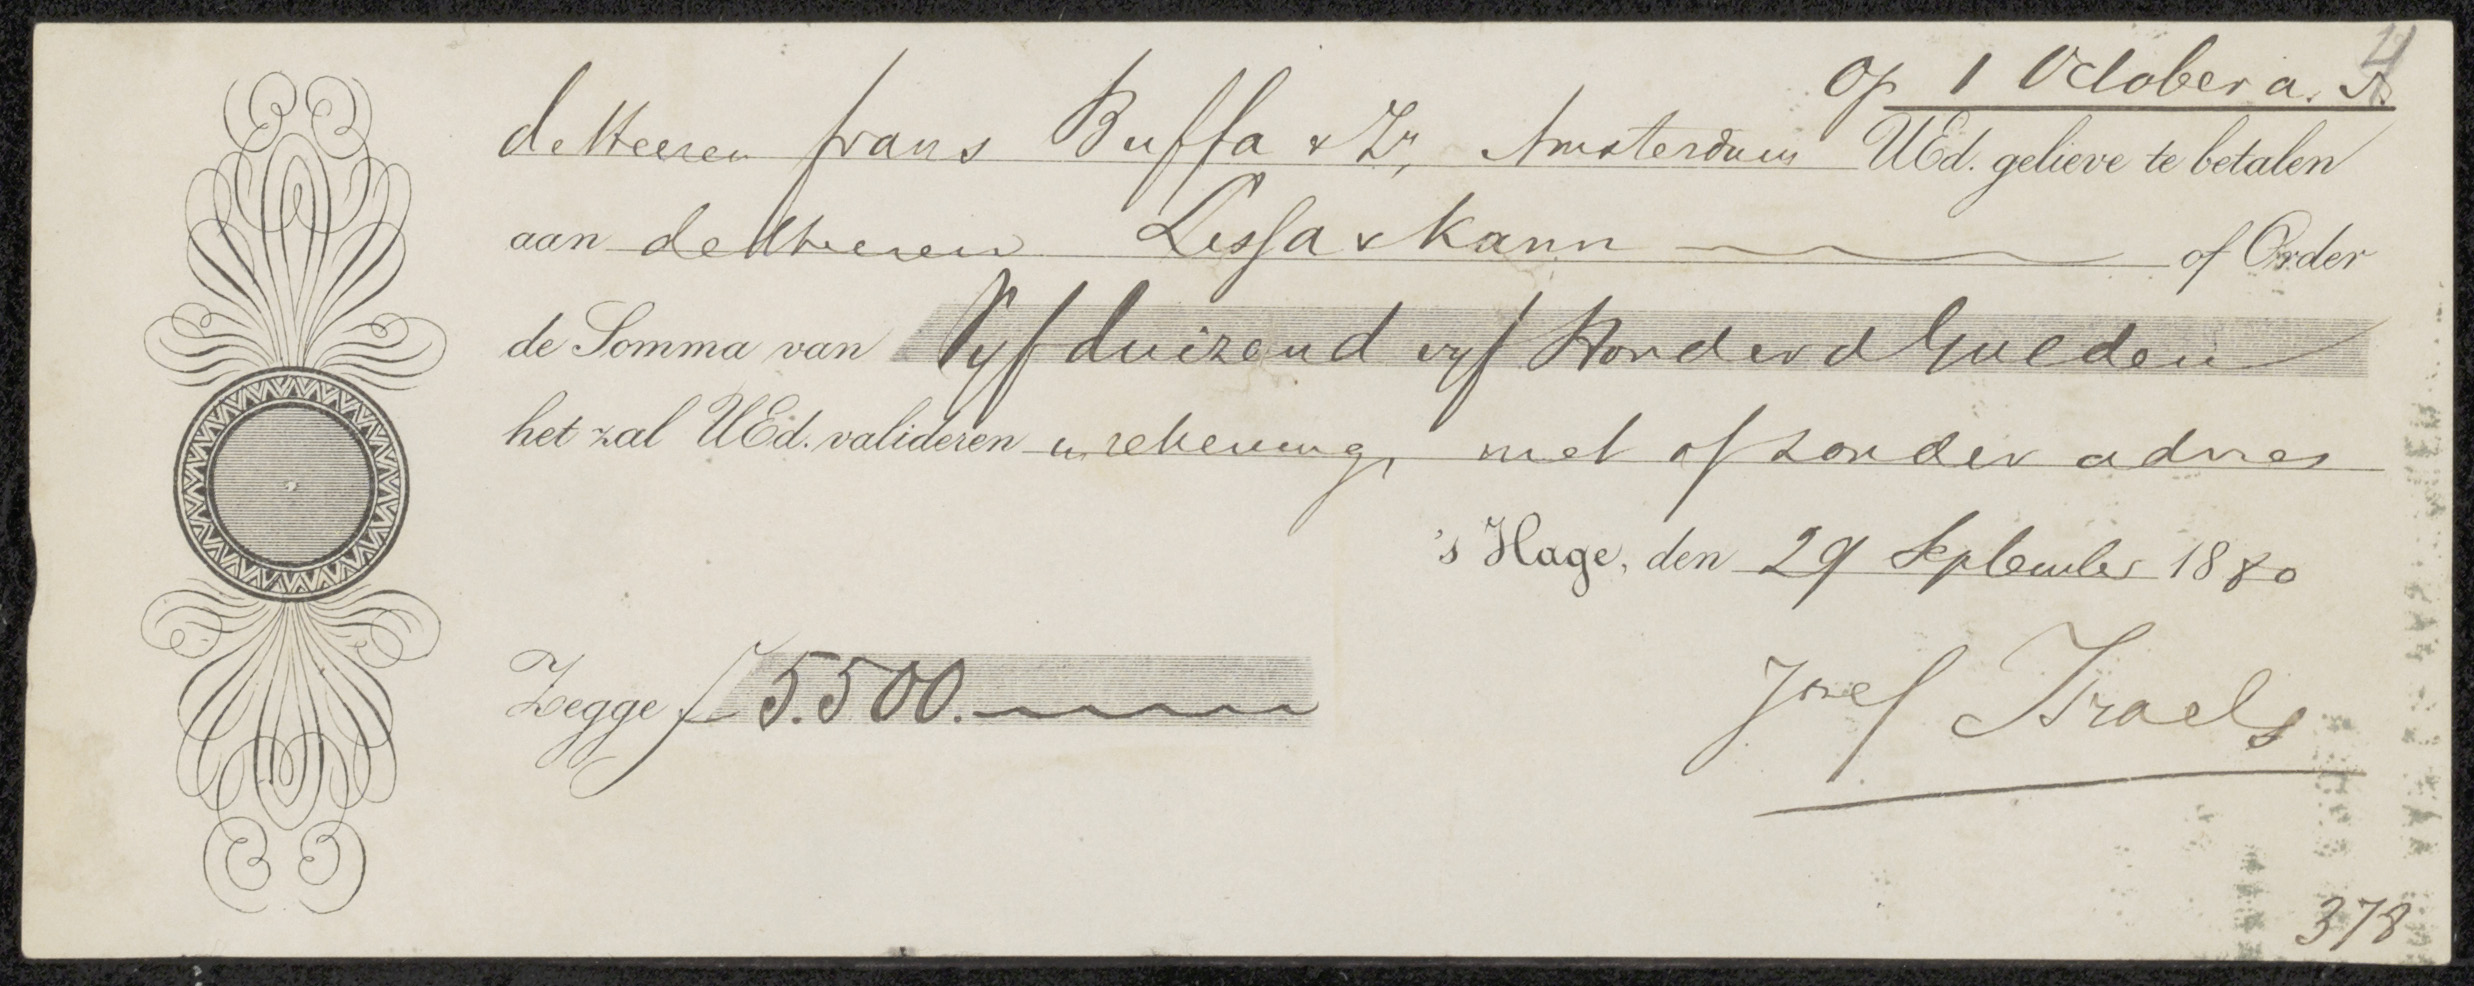 4
Op 1 October a. s.
de Heeren frans Buffa & Zn, Amsterdam UEd. gelieve te betalen
aan de Heeren Lissa & Kann of Order
de Somma van Vyf duizend vyf Honderd Gulden
het zal UEd. valideren in rekening, met of zonder advies
's Hage, den 29 September 1880
Zegge f 5.500.
Jozef Israels
378